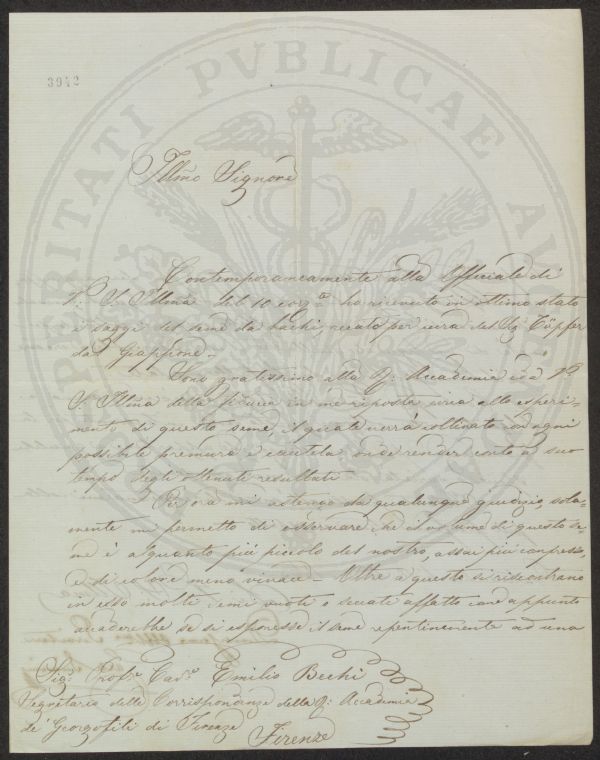 3942
PROSPERITATI PVBLICAE AVGENDAE
Illmo Signore
Contemporaneamente alla Officiale di
V. S. Illma del 10 corr.te ho ricevuto in ottimo stato
i saggi del seme da bachi, recato per cura del Sig. Töpfer
dal Giappone.
Sono gratissimo alla R: Accademia ed a V.
S. Illma della fiducia in me riposta, circa allo esperi-
mento di questo seme, il quale verrà coltivato con ogni
possibile premura e cautela onde render conto a suo
tempo degli ottenuti resultati.
Per ora mi astengo da qualunque giudizio, sola-
mente mi permetto di osservare che il volume di questo se-
me è alquanto più piccolo del nostro, assai più compresso,
e di colore meno vivace. Oltre a questo si riscontrano
in esso molti semi vuoti o seccati affatto come appunto
accaderebbe se si esponesse il seme repentinamente ad una
Sig. Profre. Cav.e Emilio Bechi
Segretario delle Corrispondenze della R: Accademia
de' Georgofili di Firenze
Firenze